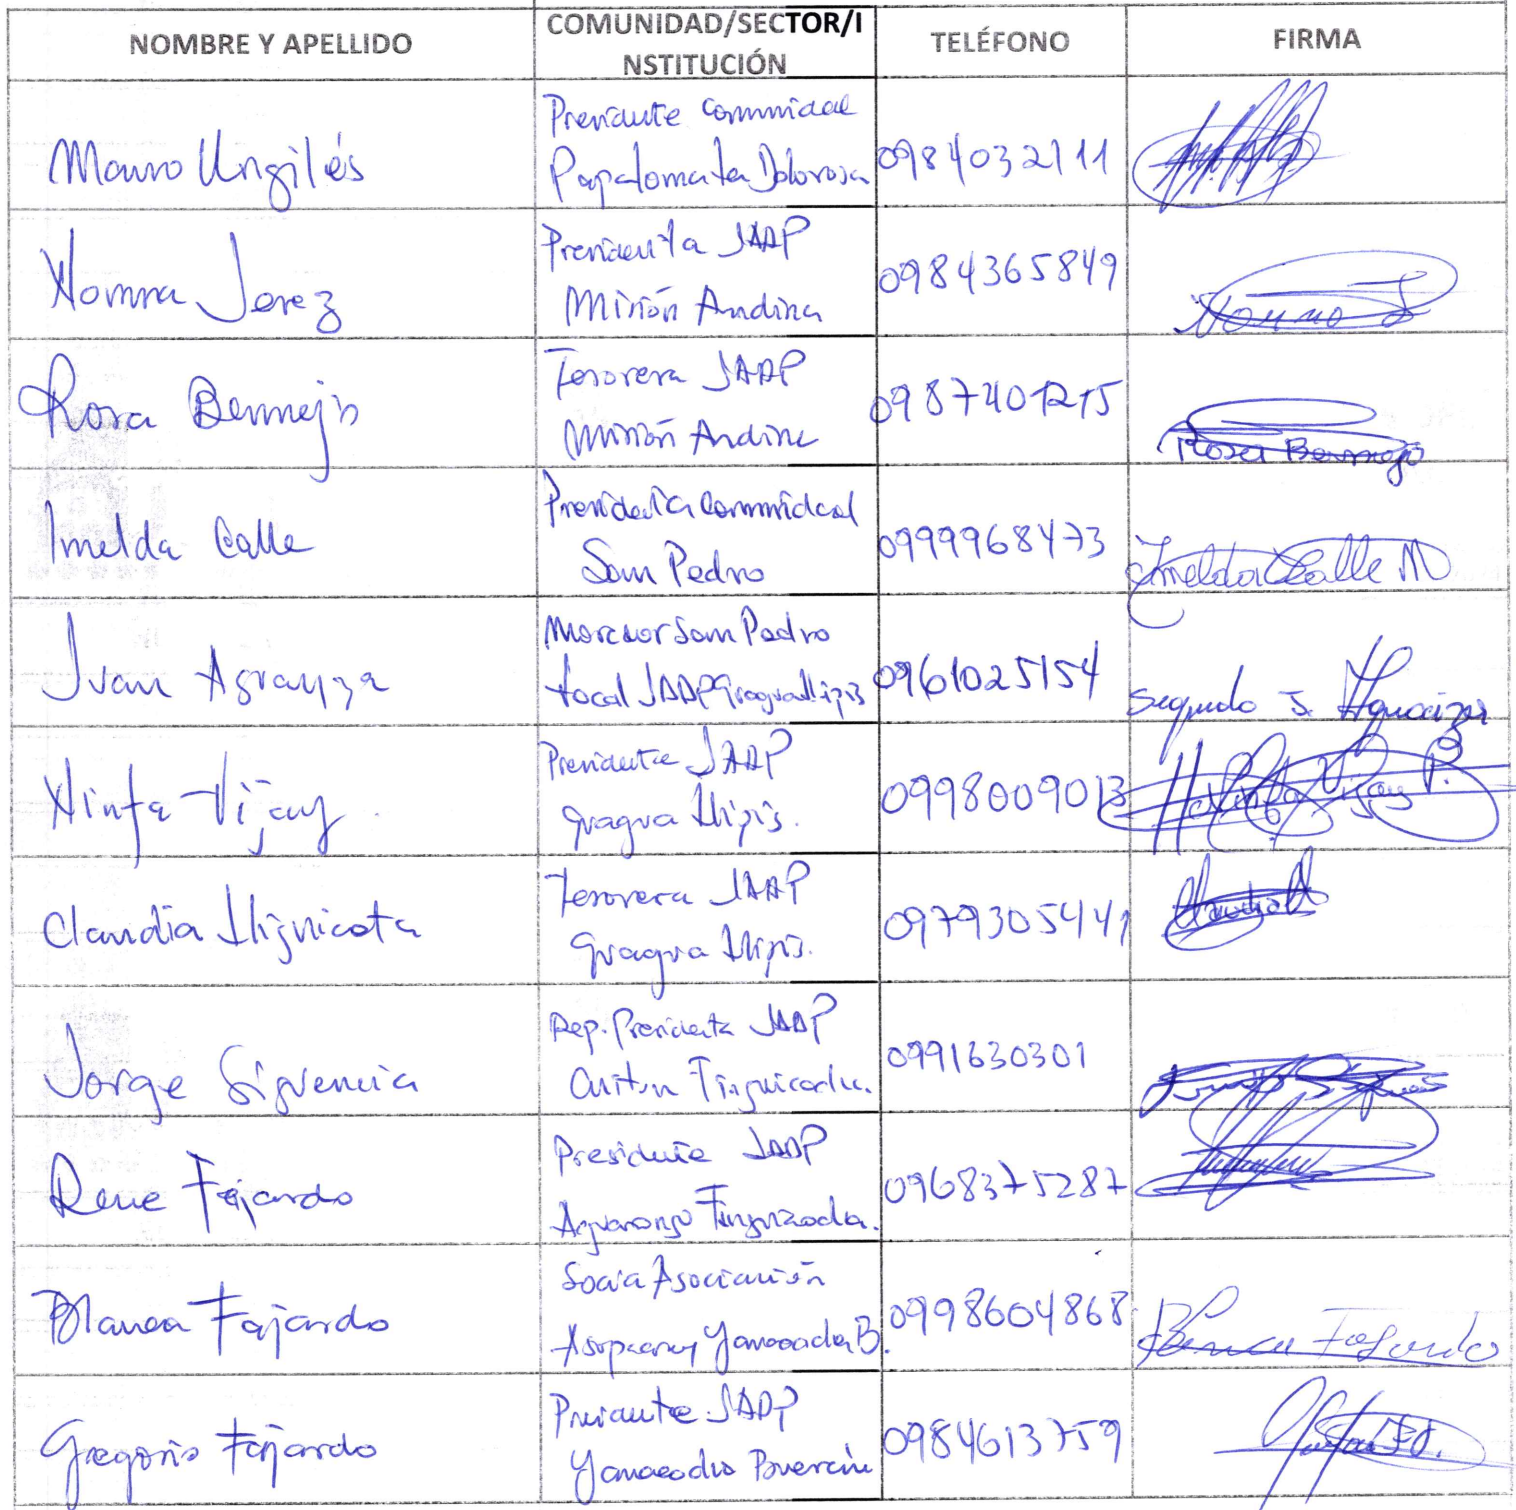 NOMBRE Y APELLIDO
COMUNIDAD/SECTOR/I
NSTITUCIÓN
TELÉFONO
FIRMA
Mauro Ungilés
Presidente Comunidad
Papaloma La Dolorosa
0984032111
Norma Jerez
Presidenta JAAP
Misión Andina
0984365849
Norma J
Rosa Bermejo
Tesorera JAAP
Misión Andina
0987401215
Rosa Bermejo
Imelda Calle
Presidenta Comunidad
San Pedro
0999968473
Imelda Calle M
Juan
San Pedro
Vocal JAAP
0961025154
Segundo J.
Ninfa Vijay
Presidenta JAAP
Guagua Llipis.
0998009013
Ninfa Vijay P.
Claudia Lliguicota
Tesorera JAAP
Guagua Llipis.
0979305441
Jorge Siguencia
Rep. Presidenta JAAP
0991630301
Rene Fajardo
Presidente JAAP
0968375287
Blanca Fajardo
Socia Asociación
0998604868
Blanca Fajardo
Gregorio Fajardo
Presidente JAAP
0984613759